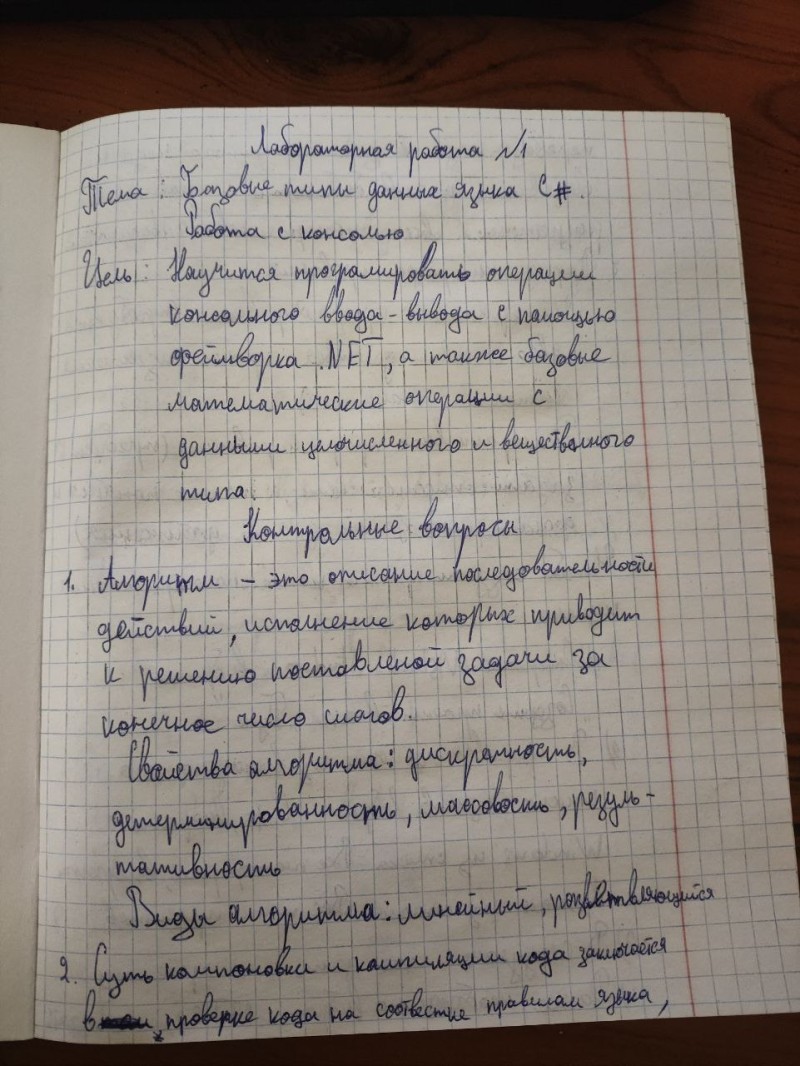 Лабораторная работа №1
Тема: Базовые типы данных языка C#.
Работа с консолью
Цель: Научится програмировать операции
консольного ввода-вывода с помощью
фреймворка .NET, а также базовые
математические операции с
данными целочисленного и вещественного
типа.
Контрольные вопросы
1. Алгоритм – это описание последовательности
действий, исполнение которых приводит
к решению поставленой задачи за
конечное число шагов.
Свойства алгоритма: дискратность,
детерминированность, массовость, резуль-
тативность
Виды алгоритма: линейный, разветвляющийся
2. Суть компоновки и компиляции кода заключается
в проверке кода на соотвествие правилам языка,